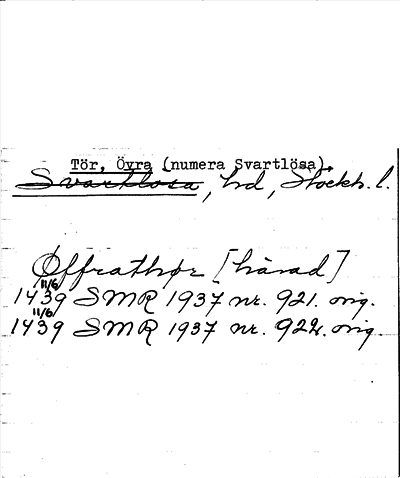 Tör, Övra (numera Svartlösa).
Svartlösa, hd, Stockh. l.
Øffrathør [härad]
11/6
1439 SMR 1937 nr. 921. orig.
11/6
1439 SMR 1937 nr. 922. orig.